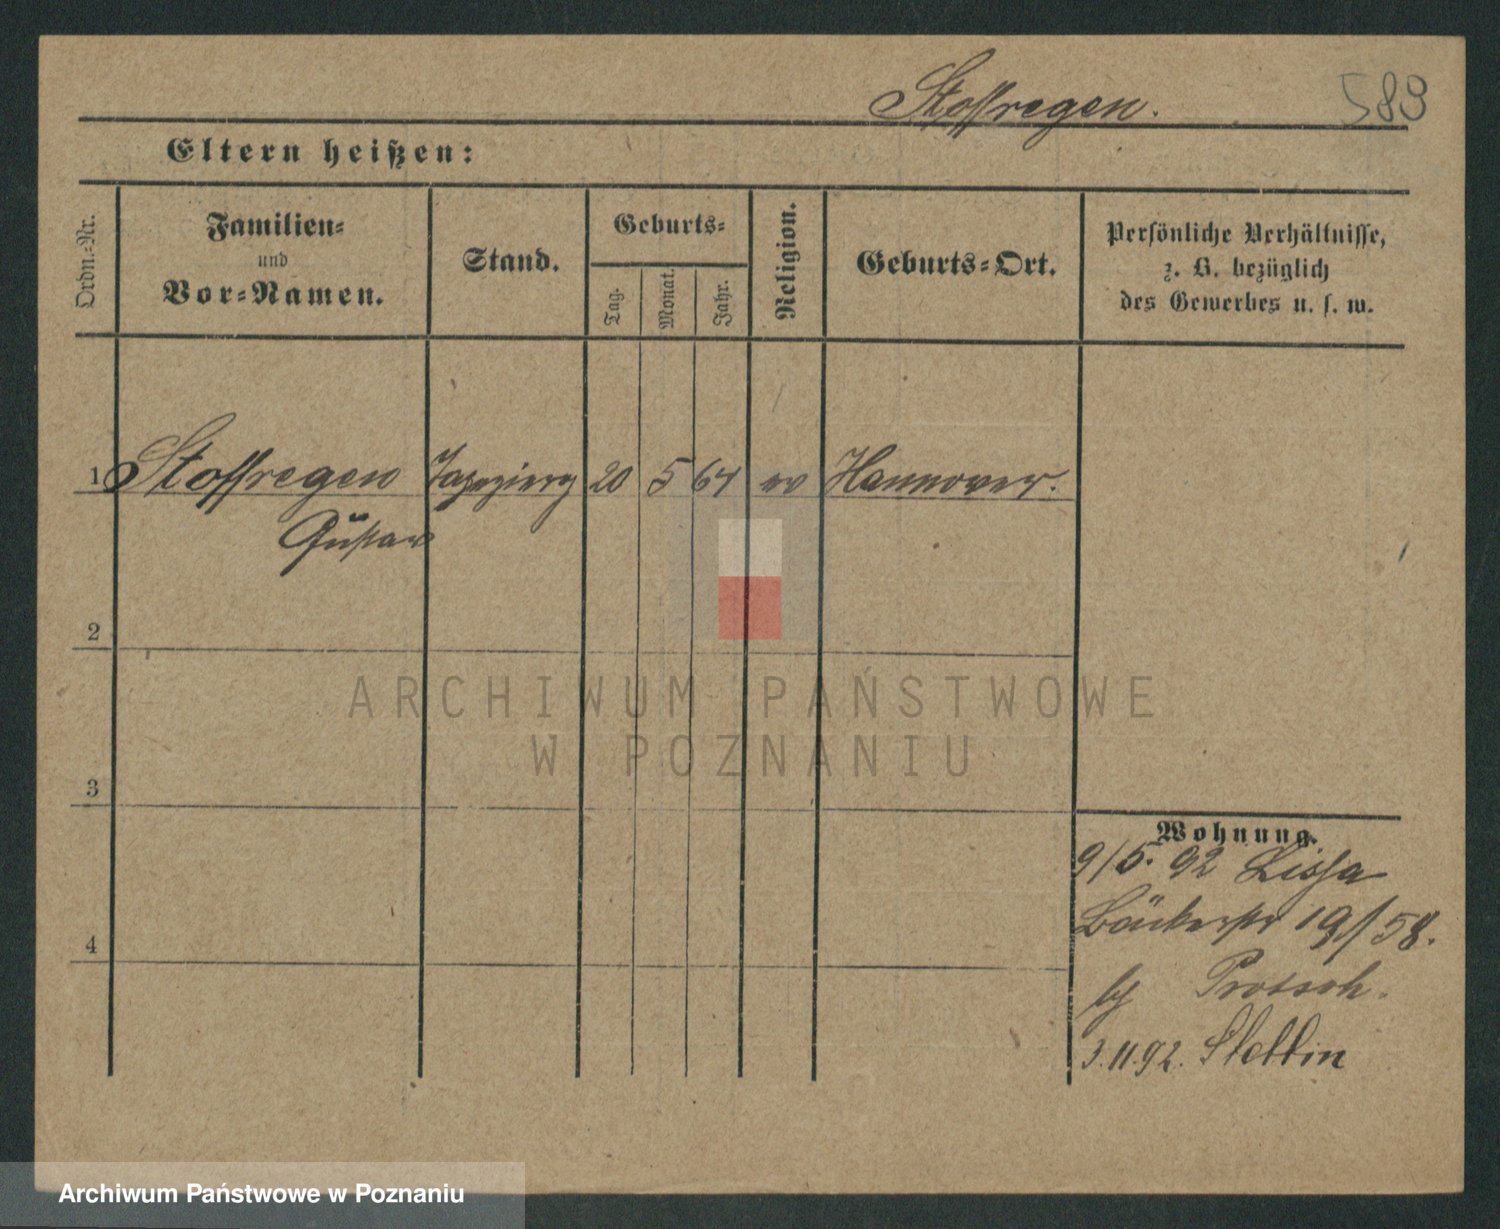 Stoffregen.
589
Eltern heißen:
Ordn.-Nr.
Familien-
und
Vor-Namen.
Stand.
Geburts-
Tag.
Monat.
Jahr.
Religion.
Geburts-Ort.
Persönliche Verhältnisse,
z. B. bezüglich
des Gewerbes u. s. w.
1 Stoffregen Tapezierg 20 5 64 ev Hannover.
Gustav
2
3
4
Wohnung.
9/5. 92 Lissa
Bäckerstr 19/58.
bj Protsch.
3.11.92. Stettin
ARCHIWUM PAŃSTWOWE
W POZNANIU
Archiwum Państwowe w Poznaniu